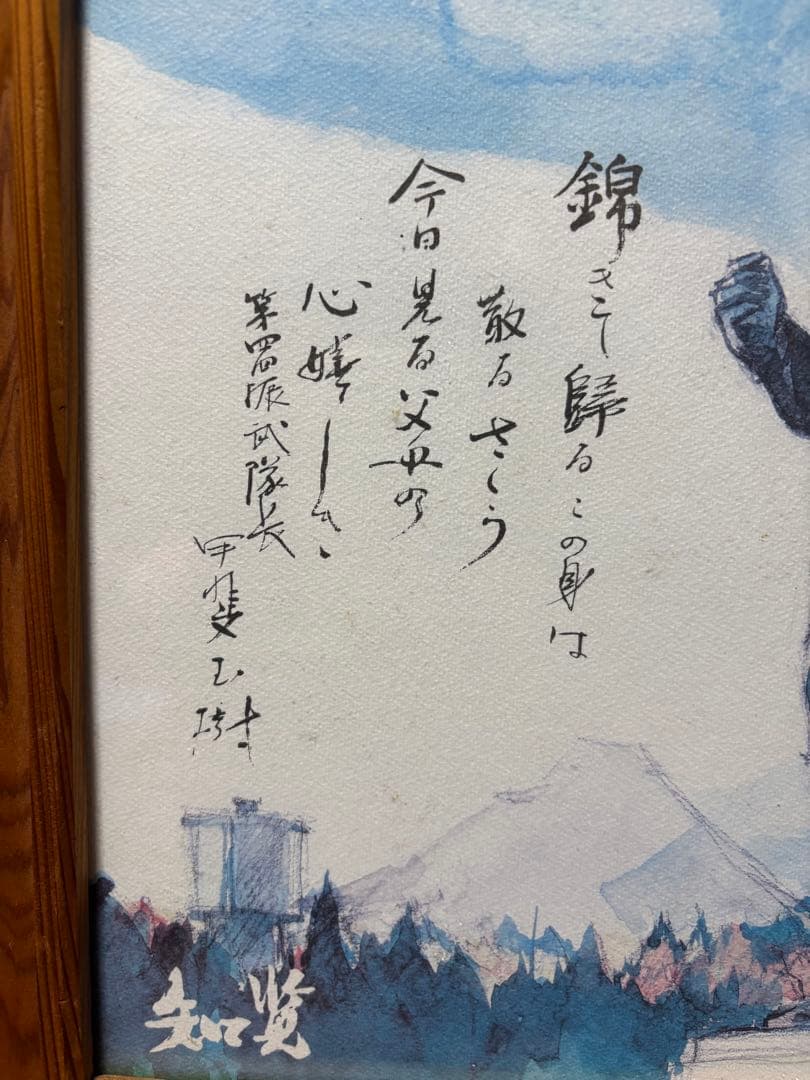 錦きて歸るこの身は
散るさくら
今日見る父母の
心嬉しき
第四振武隊長
甲斐玉樹
知覧